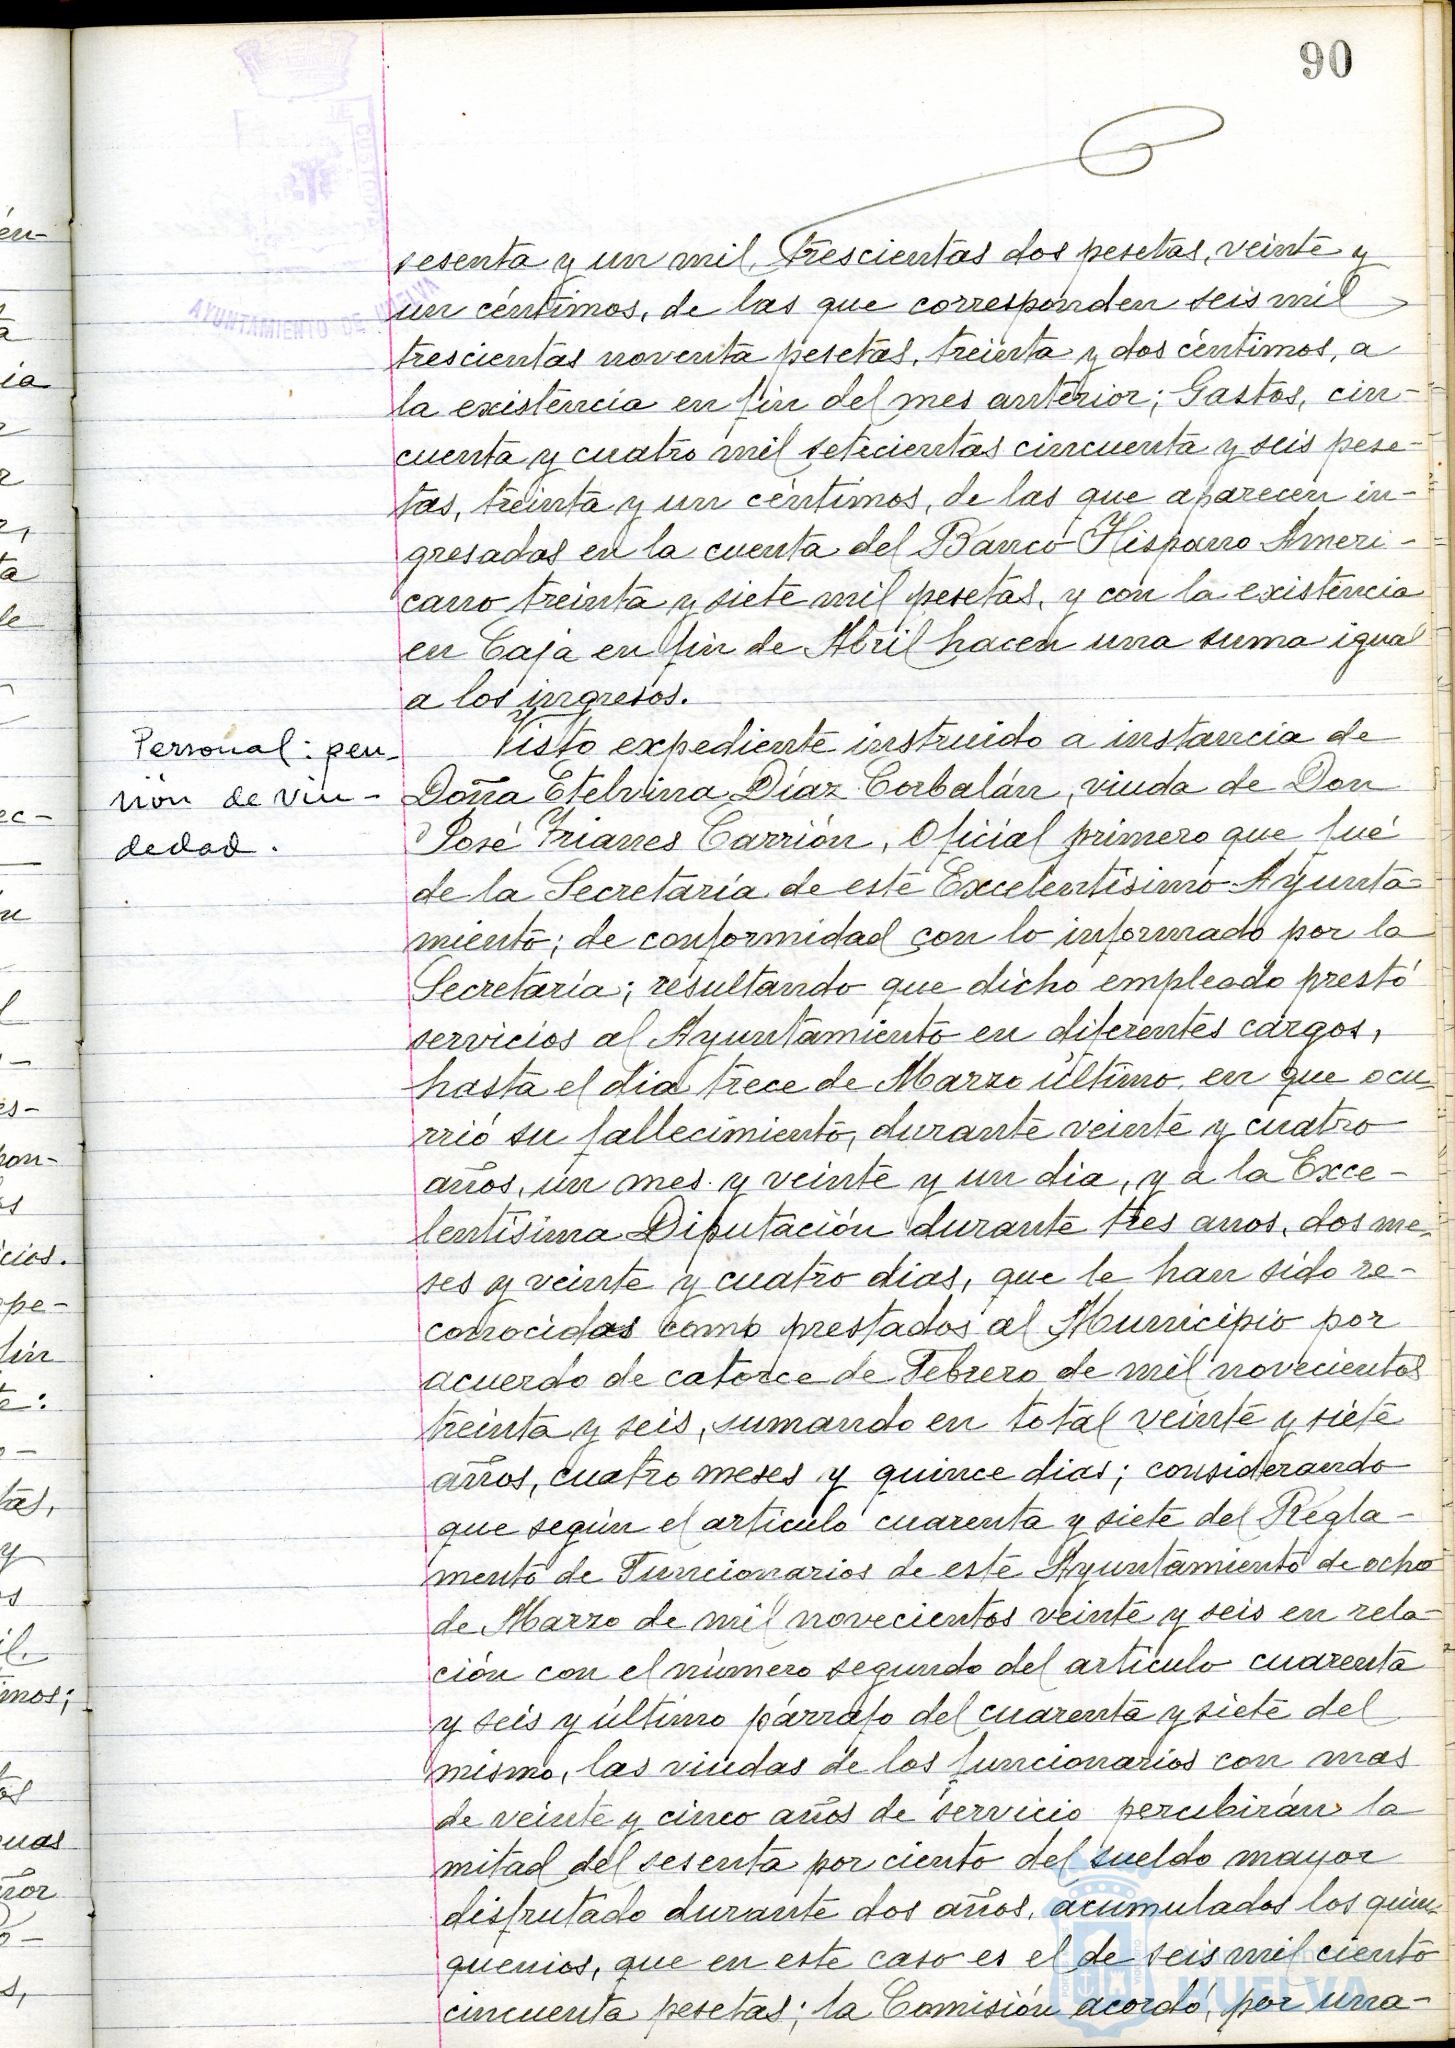 90
sesenta y un mil, trescientas dos pesetas, veinte y
un céntimos, de las que corresponden seis mil
trescientas noventa pesetas, treinta y dos céntimos, a
la existencia en fin del mes anterior; Gastos, cin-
cuenta y cuatro mil setecientas cincuenta y seis pese-
tas, treinta y un céntimos, de las que aparecen in-
gresadas en la cuenta del Banco Hispano Ameri-
cano treinta y siete mil pesetas, y con la existencia
en Caja en fin de Abril hacen una suma igual
a los ingresos.
Personal: pen-
sión de viu-
dedad.
Visto expediente instruido a instancia de
Doña Etelvina Díaz Corbalán, viuda de Don
José Trianes Carrión, Oficial primero que fué
de la Secretaría de este Excelentísimo Ayunta-
miento; de conformidad con lo informado por la
Secretaría; resultando que dicho empleado prestó
servicios al Ayuntamiento en diferentes cargos,
hasta el dia trece de Marzo último en que ocu-
rrió su fallecimiento, durante veinte y cuatro
años, un mes y veinte y un dia, y a la Exce-
lentísima Diputación durante tres anos, dos me-
ses y veinte y cuatro dias, que le han sido re-
conocidas como prestados al Municipio por
acuerdo de catorce de Febrero de mil novecientos
treinta y seis, sumando en total veinte y siete
años, cuatro meses y quince dias; considerando
que según el artículo cuarenta y siete del Regla-
mento de Funcionarios de este Ayuntamiento de ocho
de Marzo de mil novecientos veinte y seis en rela-
ción con el número segundo del artículo cuarenta
y seis y último párrafo del cuarenta y siete del
mismo, las viudas de los funcionarios con mas
de veinte y cinco años de servicio percibirán la
mitad del sesenta por ciento del sueldo mayor
disfrutado durante dos años, acumulados los quin-
quenios, que en este caso es el de seis mil ciento
cincuenta pesetas; la Comisión acordó, por una-
AYUNTAMIENTO DE HUELVA
HUELVA